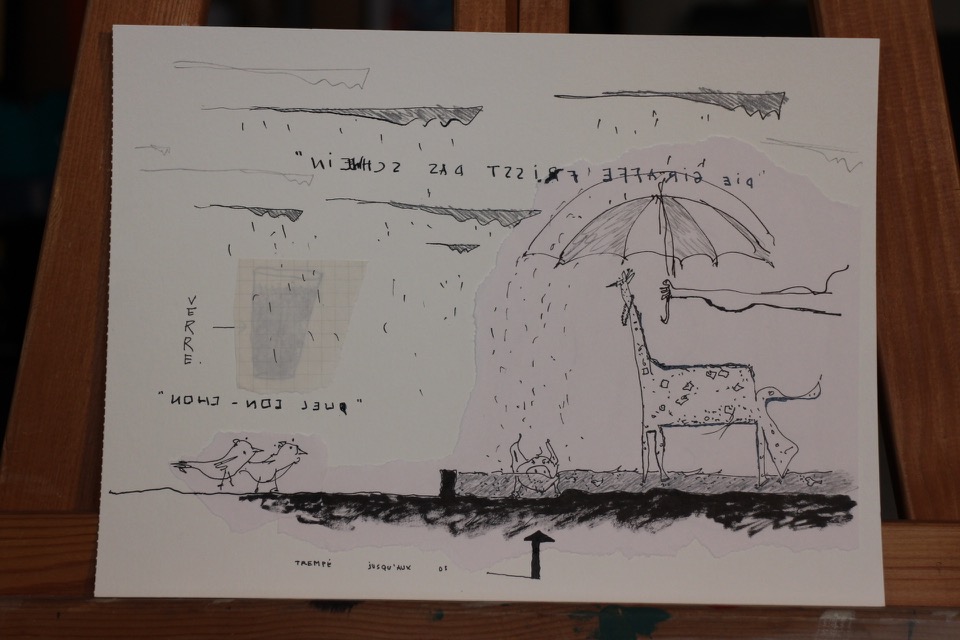 "DIE GIRAFFE FRISST DAS SCHWEIN"
VERRE.
"QUEL CON-CHON"
TREMPÉ JUSQU'AUX OS